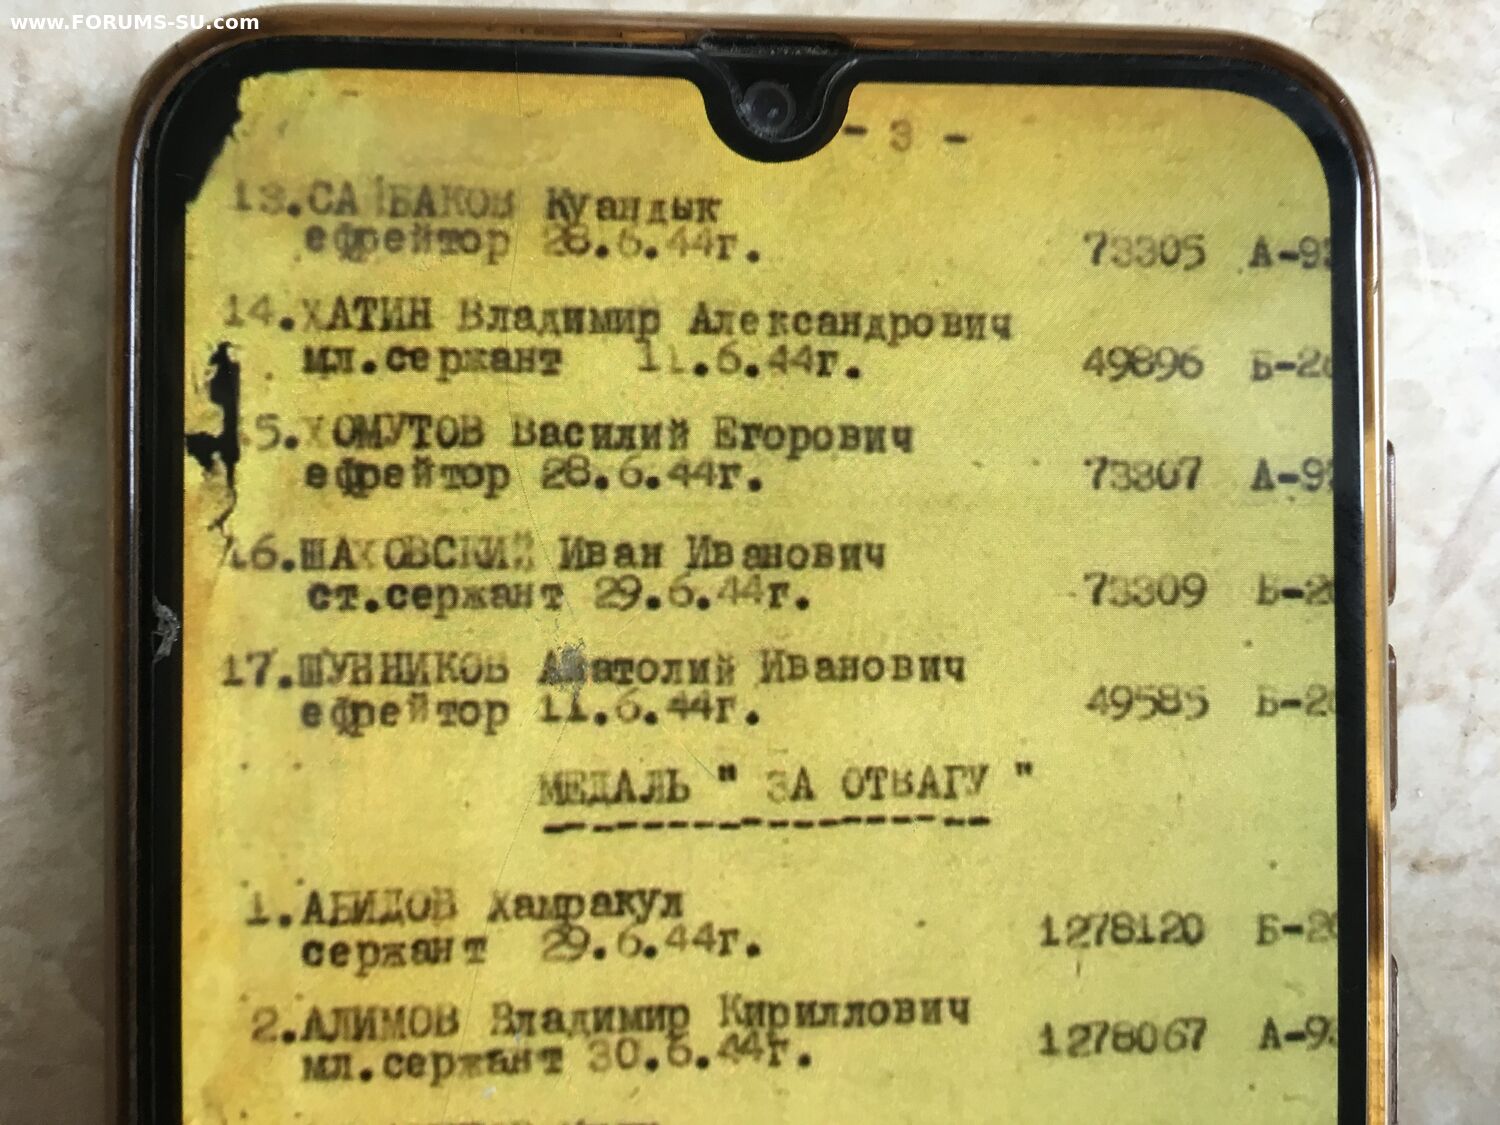 www.FORUMS-SU.com
- 3 -
13. Куандык
ефрейтор 28.6.44г. 73305 А-93
14.ХАТИН Владимир Александрович
мл.сержант 11.6.44г. 49896 Б-20
15.ХОМУТОВ Василий Егорович
ефрейтор 28.6.44г. 73307 А-9
16.ШАХОВСКИЙ Иван Иванович
ст.сержант 29.6.44г. 73309 Б-20
17.ШУННИКОВ Анатолий Иванович
ефрейтор 11.6.44г. 49585 Б-20
МЕДАЛЬ " ЗА ОТВАГУ "
1.АБИДОВ Хамракул
сержант 29.6.44г. 1278120 Б-20
2.АЛИМОВ Владимир Кириллович
мл.сержант 30.6.44г. 1278067 А-93